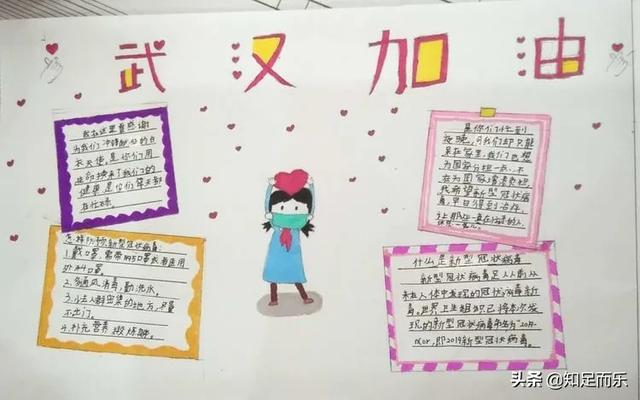 武汉加油
我在这里首感谢
为我们冲锋
衣天使,是你们用
生命换来了我们的
健康,是你们每天都
在忙碌。
是你们忙到
夜晚,可我们却只能
呆在家里,我们也想
为国家分担一点,不
在为国家增添负担
我希望新型冠状病
毒,早日得到治疗,
怎样预防新型冠状病毒:
1.戴口罩,需带N95口罩或者医用
外科口罩。
2.多通风,消毒,勤洗水。
3.少去人群密集的地方,尽量
不出门。
4.补充营养 锻炼。
什么是新型冠状病毒
新型冠状病毒是人人前从
未在人体中发现的冠状病毒新
毒。世界卫生组织已将本次发
现的新型冠状病毒命名为"2019-
nCoV,即2019新型冠状病毒。
头条 @知足而乐